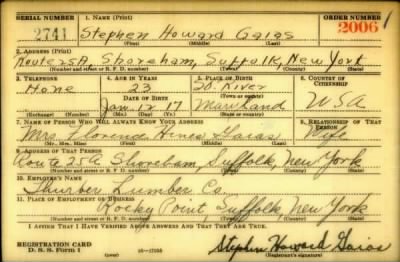 SERIAL NUMBER 1. NAME (Print) ORDER NUMBER
2741 Stephen Howard Gaias 2006
(First) (Middle) (Last)
2. ADDRESS (Print)
Shoreham, Suffolk, New York
(Number and street or R. F. D. number) (Town) (County) (State)
3. TELEPHONE 4. AGE IN YEARS 5. PLACE OF BIRTH 6. COUNTRY OF CITIZENSHIP
None 23 So. River
DATE OF BIRTH (Town or county)
Jan. 12 17 Maryland USA
(Exchange) (Number) (Mo.) (Day) (Yr.) (State or country)
7. NAME OF PERSON WHO WILL ALWAYS KNOW YOUR ADDRESS 8. RELATIONSHIP OF THAT PERSON
Mrs. Florence Hines Gaias Wife
(Mr., Mrs., Miss) (First) (Middle) (Last)
9. ADDRESS OF THAT PERSON
Route 25A Shoreham, Suffolk, New York
(Number and street or R. F. D. number) (Town) (County) (State)
10. EMPLOYER'S NAME
Thurber Lumber Co.
11. PLACE OF EMPLOYMENT OR BUSINESS
Rocky Point Suffolk New York
(Number and street or R. F. D. number) (Town) (County) (State)
I AFFIRM THAT I HAVE VERIFIED ABOVE ANSWERS AND THAT THEY ARE TRUE.
REGISTRATION CARD
D. S. S. Form 1 Stephen Howard Gaias
(Registrant's signature)